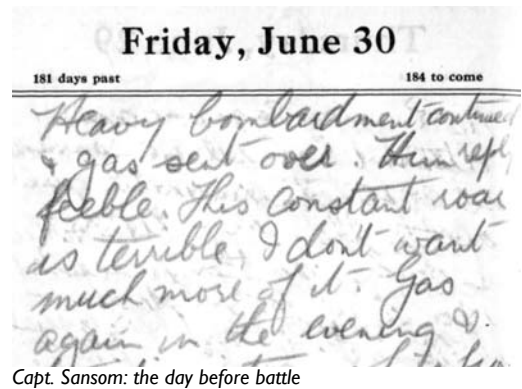 Friday, June 30
181 days past 184 to come
Heavy bombardment continued
& gas sent over. Hun reply
feeble. This constant roar
is terrible, I don't want
much more of it. Gas
again in the evening &
Capt. Sansom: the day before battle